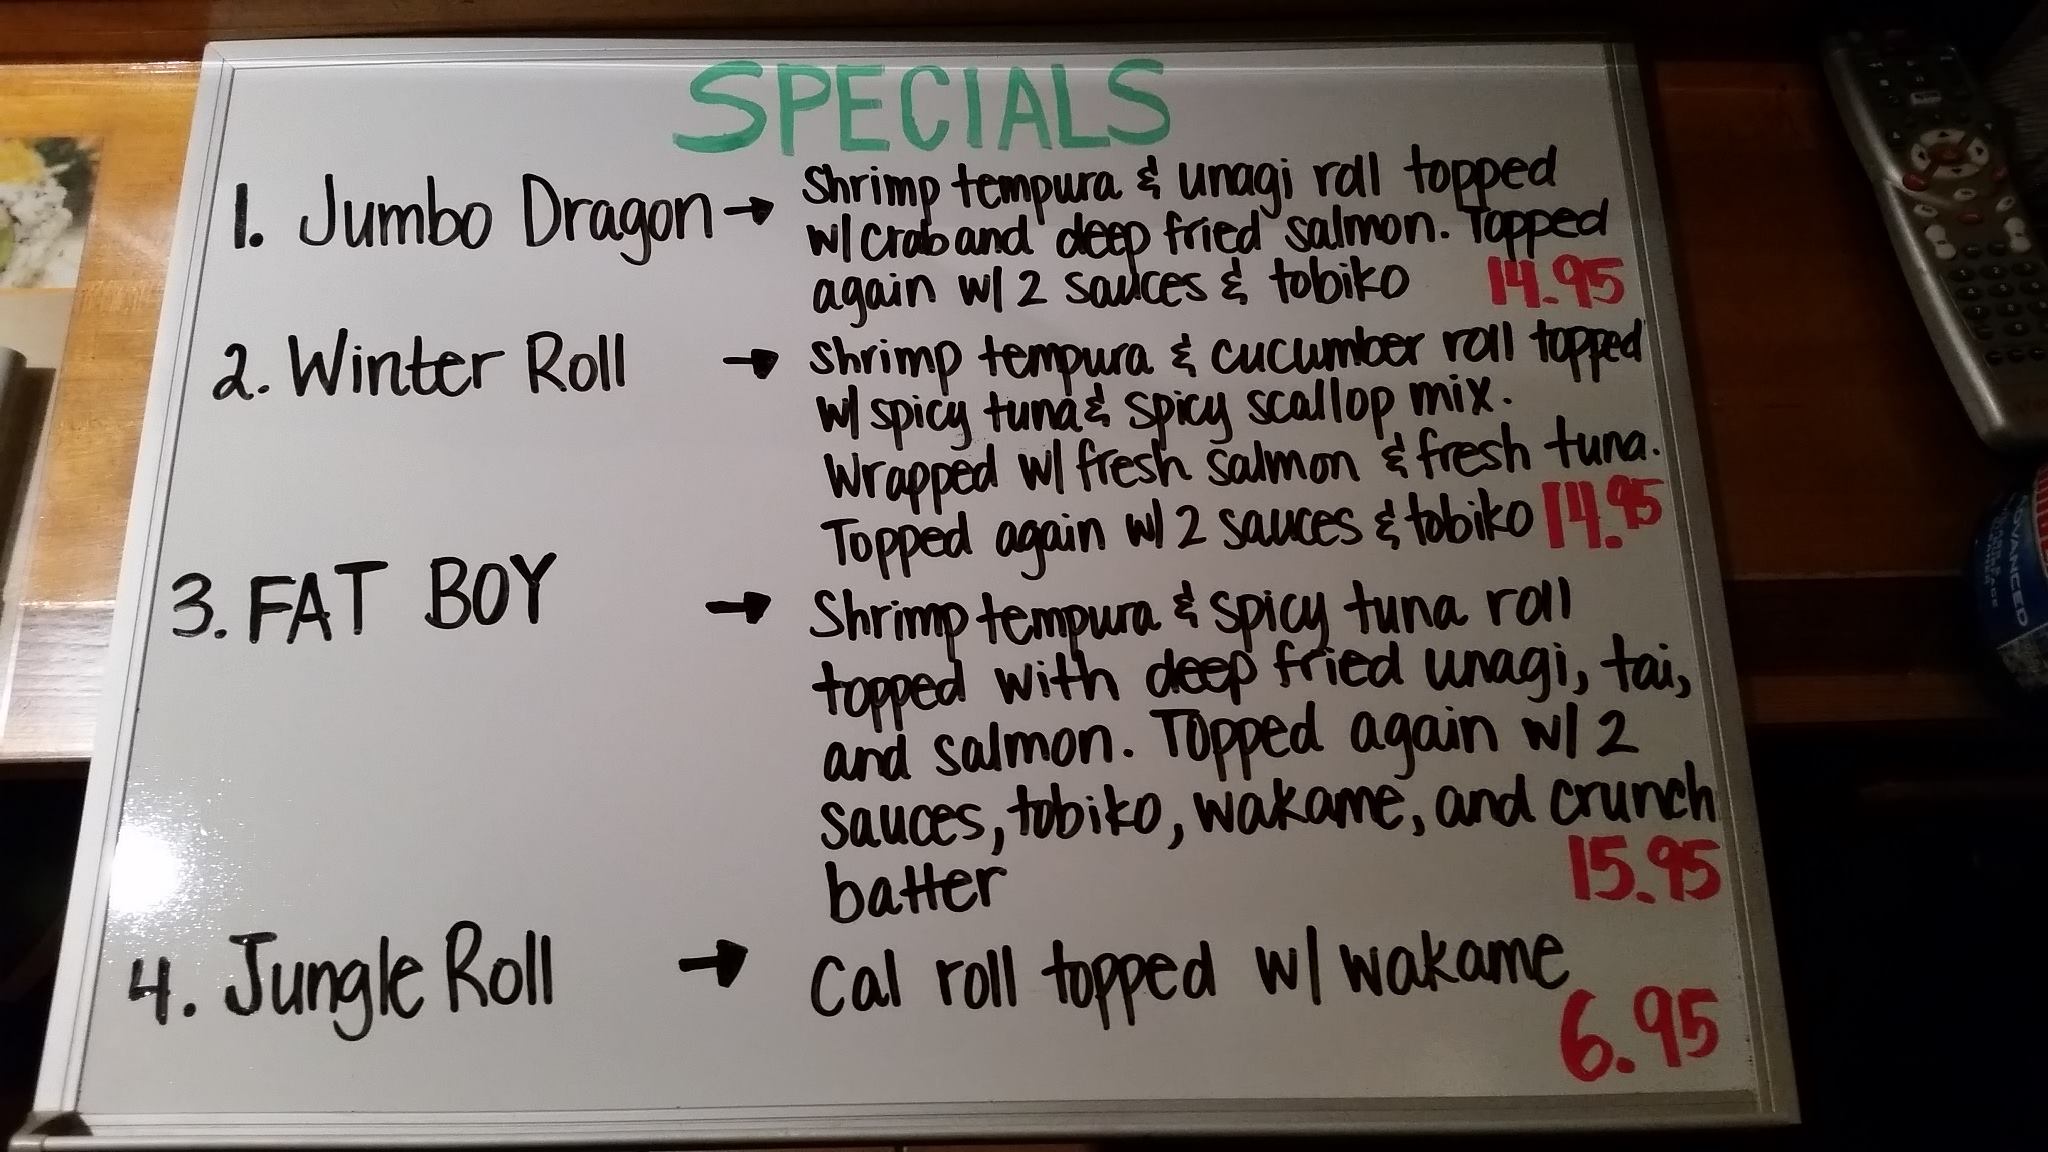 SPECIALS
1. Jumbo Dragon → Shrimp tempura & unagi roll topped
w/ crab and deep fried salmon. Topped
again w/ 2 sauces & tobiko 14.95
2. Winter Roll → Shrimp tempura & cucumber roll topped
w/ spicy tuna & spicy scallop mix.
Wrapped w/ fresh salmon & fresh tuna.
Topped again w/ 2 sauces & tobiko 14.95
3. FAT BOY → Shrimp tempura & spicy tuna roll
topped with deep fried unagi, tai,
and salmon. Topped again w/ 2
sauces, tobiko, wakame, and crunch
batter 15.95
4. Jungle Roll → Cal roll topped w/ wakame
6.95
ADVANCED